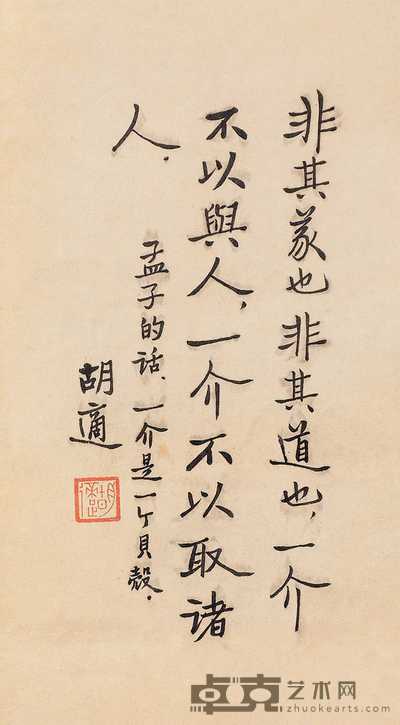 非其义也非其道也，一介
不以與人，一介不以取诸
人．
孟子的话、一介是一个貝殼．
胡適
卓克艺术网
zhuokearts.com